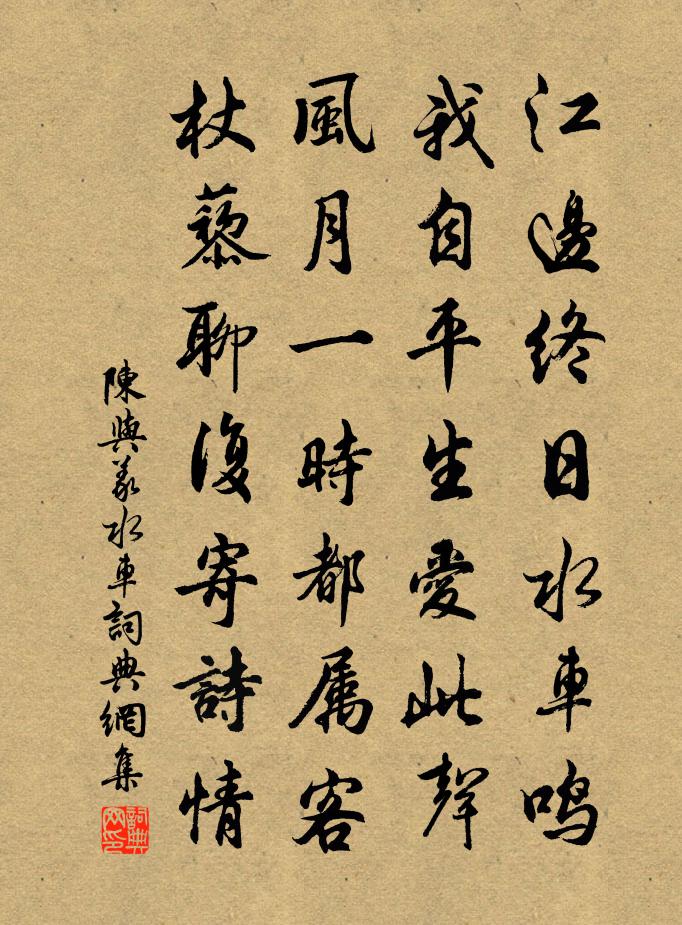 江邊終日水車鳴
我自平生愛此聲
風月一時都属客
杖藜聊復寄詩情
陳與義水車詞典網集
詞典网印